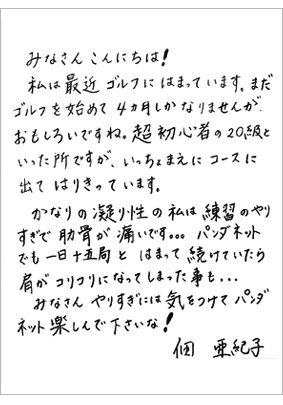 みなさんこんにちは!
私は最近ゴルフにはまっています。まだ
ゴルフを始めて4カ月しかなりませんが、
おもしろいですね。超初心者の20級と
いった所ですが、いっちょまえにコースに
出てはりきっています。
かなりの凝り性の私は練習のやり
すぎで肋骨が痛いです。。。パンダネット
でも一日十五局とはまって続けていたら
肩がコリコリになってしまった事も...
みなさんやりすぎには気をつけてパンダ
ネット楽しんで下さいな!
佃 亜紀子